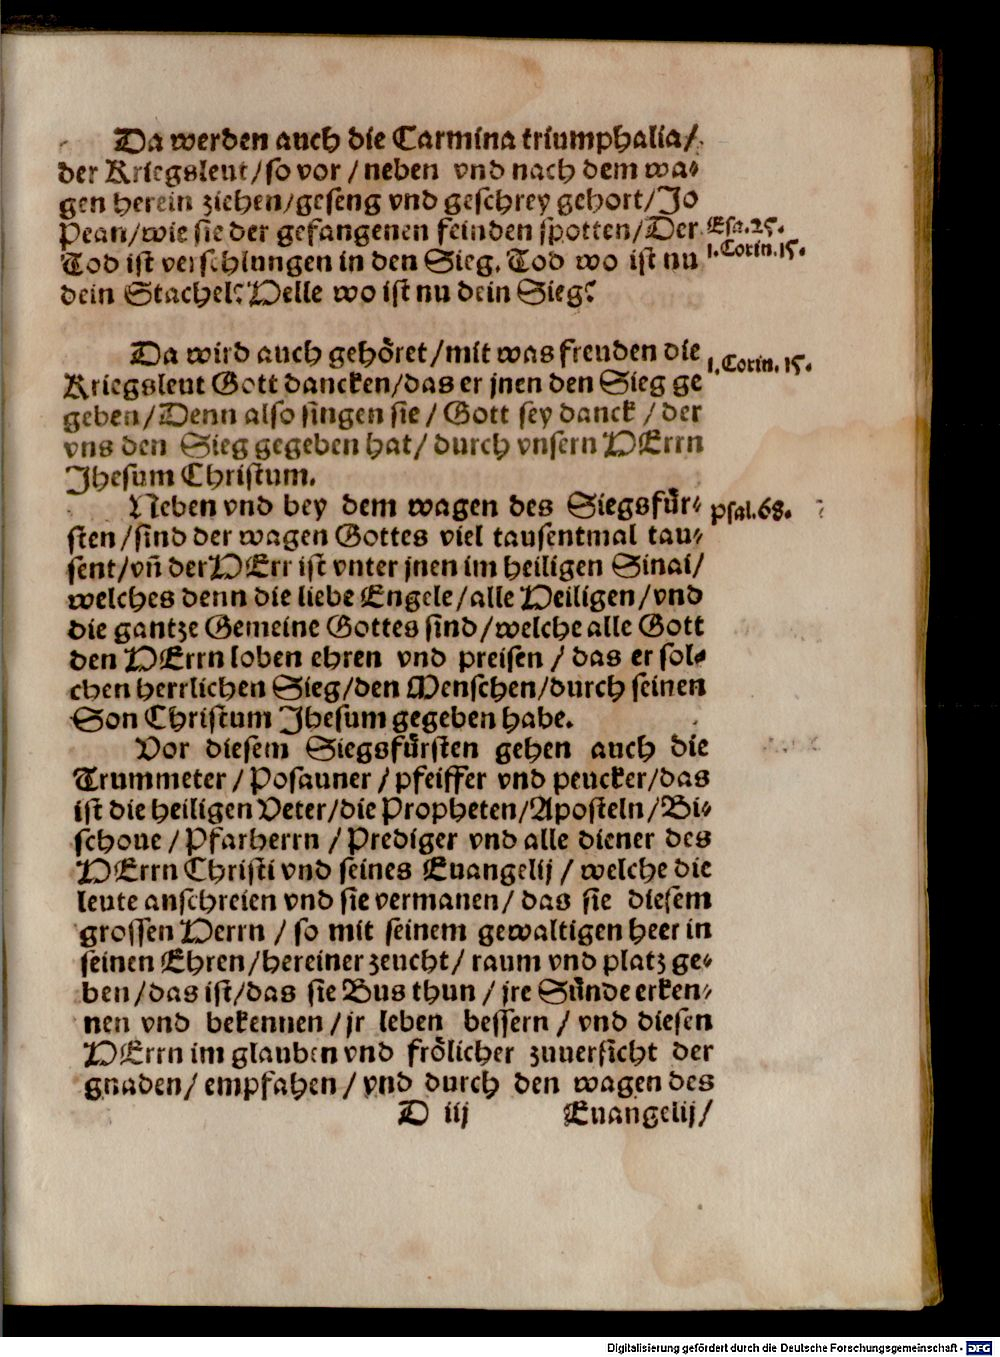 Da werden auch die Carmina triumphalia/
der Kriegsleut/so vor / neben vnd nach dem wa-
gen herein ziehen/geseng vnd geschrey gehort/Jo
Pean/wie sie der gefangenen feinden spotten/Der
Esa.25.
Tod ist verschlungen in den Sieg. Tod wo ist nu
1.Corin.15.
dein Stachel? Helle wo ist nu dein Sieg?
Da wird auch gehöret/mit was freuden die
1.Corin.15.
Kriegsleut Gott dancken/das er jnen den Sieg ge
geben/Denn also singen sie / Gott sey danck / der
vns den Sieg gegeben hat/ durch vnsern HErrn
Jhesum Christum.
Neben vnd bey dem wagen des Siegsfür-
Psal.68.
sten/sind der wagen Gottes viel tausentmal tau-
sent/vñ der HErr ist vnter jnen im heiligen Sinai/
welches denn die liebe Engele/alle Heiligen/vnd
die gantze Gemeine Gottes sind/welche alle Gott
den HErrn loben ehren vnd preisen / das er sol-
chen herrlichen Sieg/den Menschen/durch seinen
Son Christum Jhesum gegeben habe.
Vor diesem Siegsfürsten gehen auch die
Trummeter / Posauner / pfeiffer vnd peucker/das
ist die heiligen Veter/die Propheten/Aposteln/Bi-
schoue / Pfarherrn / Prediger vnd alle diener des
HErrn Christi vnd seines Euangelij / welche die
leute anschreien vnd sie vermanen/ das sie diesem
grossen Herrn / so mit seinem gewaltigen heer in
seinen Ehren/hereiner zeucht/ raum vnd platz ge-
ben/das ist/das sie Bus thun / jre Sünde erken-
nen vnd bekennen/jr leben bessern / vnd diesen
HErrn im glauben vnd frölicher zuuersicht der
gnaden/ empfahen/ vnd durch den wagen des
D iij Euangelij/
Digitalisierung gefördert durch die Deutsche Forschungsgemeinschaft - DFG